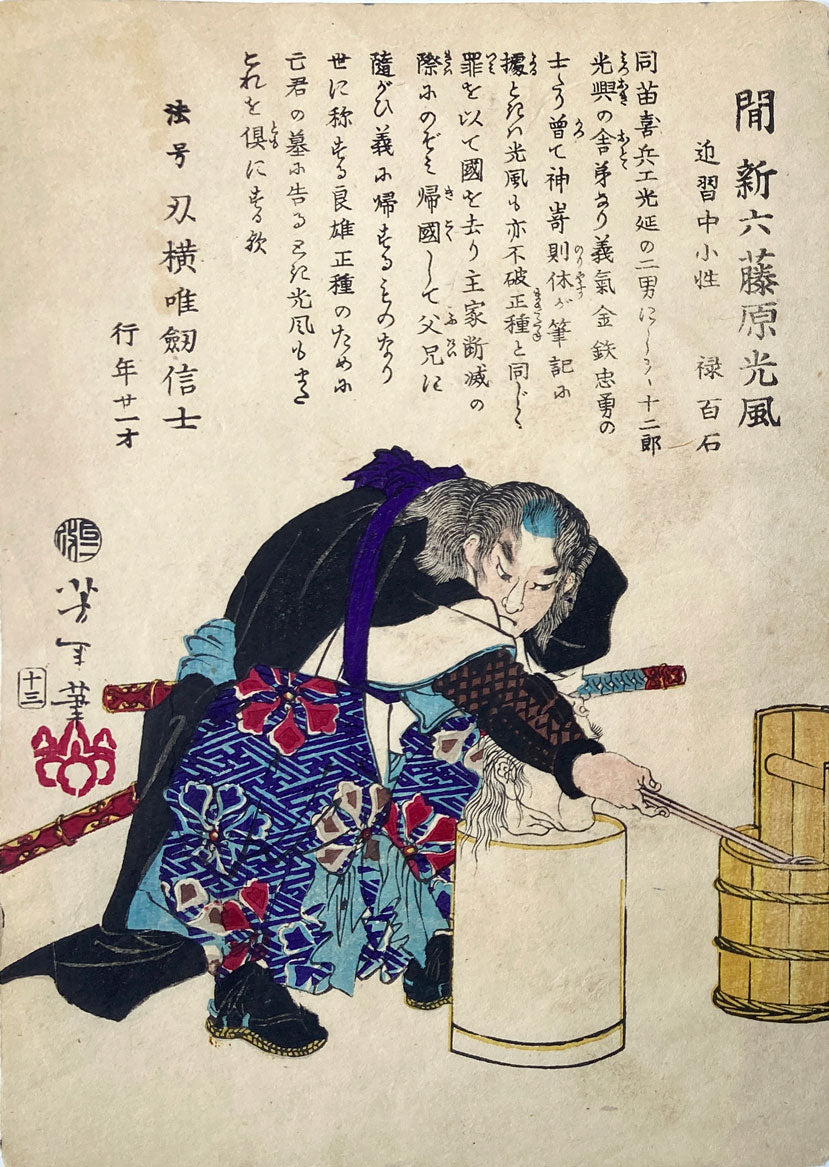 間 新六藤原光風
近習中小性 禄百石
同苗喜兵エ光延の二男にして十二郎
光興の舎弟なり義氣金鉄忠勇の
士たり曾て神嵜則休が筆記に
據ときハ光風も亦不破正種と同じく
罪を以て國を去り主家断滅の
際にのぞミ帰國して父兄に
隨がひ義に帰するものなり
世に称する良雄正種のために
亡君の墓に告る
これを倶にする歟
法号 刃横唯劔信士
行年廿一才
芳年筆
十三